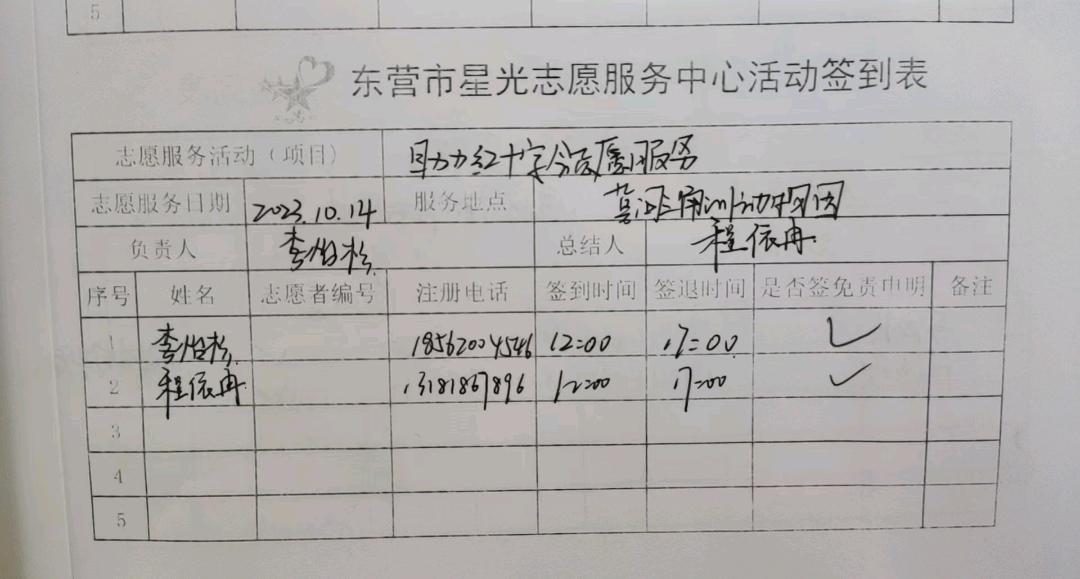 5
东营市星光志愿服务中心活动签到表
志愿服务活动（项目） 助力红十字会志愿服务
志愿服务日期 2023.10.14 服务地点
负责人 李怡杉 总结人 程依冉
序号 姓名 志愿者编号 注册电话 签到时间 签退时间 是否签免责申明 备注
1 李怡杉 18562004546 12:00 17:00 ✓
2 程依冉 13181867896 12:00 17:00 ✓
3
4
5